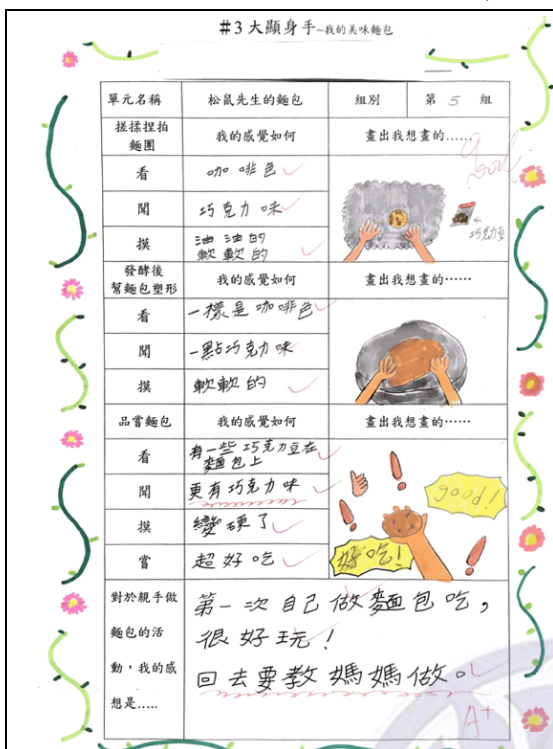 #3 大顯身手~我的美味麵包
單元名稱 松鼠先生的麵包 組別 第 5 組
搓揉捏拍
麵團 我的感覺如何 畫出我想畫的……
good
看 咖啡色
聞 巧克力味
巧克力豆
摸 油油的
軟軟的
發酵後
幫麵包塑形 我的感覺如何 畫出我想畫的……
看 一樣是咖啡色
聞 一點巧克力味
摸 軟軟的
品嘗麵包 我的感覺如何 畫出我想畫的……
看 有一些巧克力豆在
麵包上
聞 更有巧克力味
good!
摸 變硬了
嘗 超好吃
好吃!
對於親手做
麵包的活
動,我的感
想是.....
第一次自己做麵包吃,
很好玩!
回去要教媽媽做。
A+